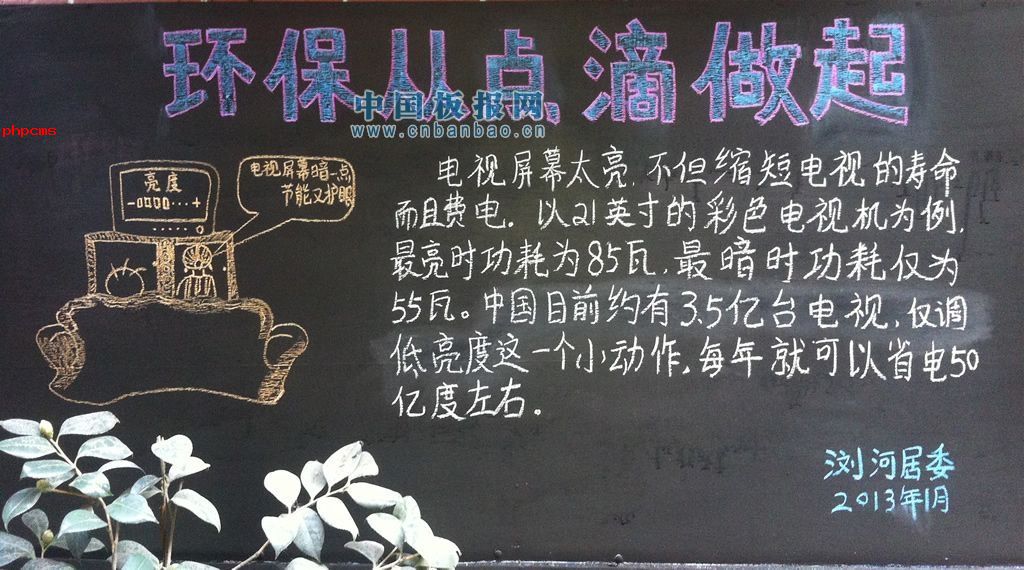 环保从点滴做起
中国板报网
www.cnbanbao.cn
phpcms
电视屏幕暗一点
节能又护眼
亮度
-
+
电视屏幕太亮,不但缩短电视的寿命
而且费电。以21英寸的彩色电视机为例,
最亮时功耗为85瓦,最暗时功耗仅为
55瓦。中国目前约有3.5亿台电视,仅调
低亮度这一个小动作,每年就可以省电50
亿度左右。
浏河居委
2013年1月